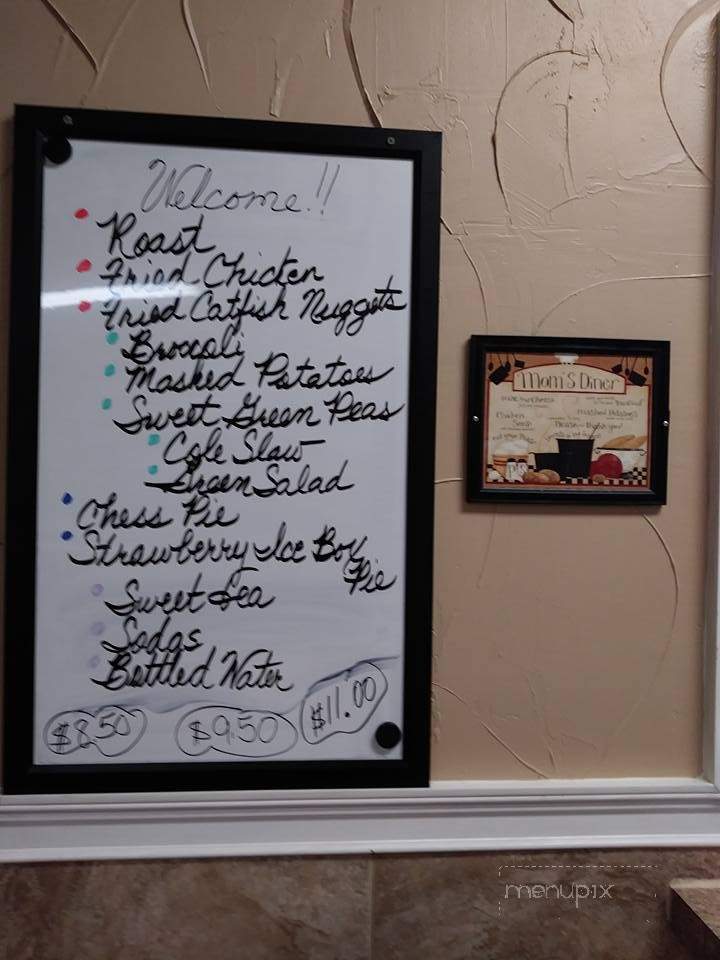 Welcome!!
Roast
Fried Chicken
Fried Catfish Nuggets
Broccoli
Mashed Potatoes
Sweet Green Peas
Cole Slaw
Green Salad
Chess Pie
Strawberry Ice Box
Pie
Sweet Tea
Sodas
Bottled Water
$8.50 $9.50 $11.00
Mom's Diner
Chicken
Soup
Mashed Potatoes
menupix